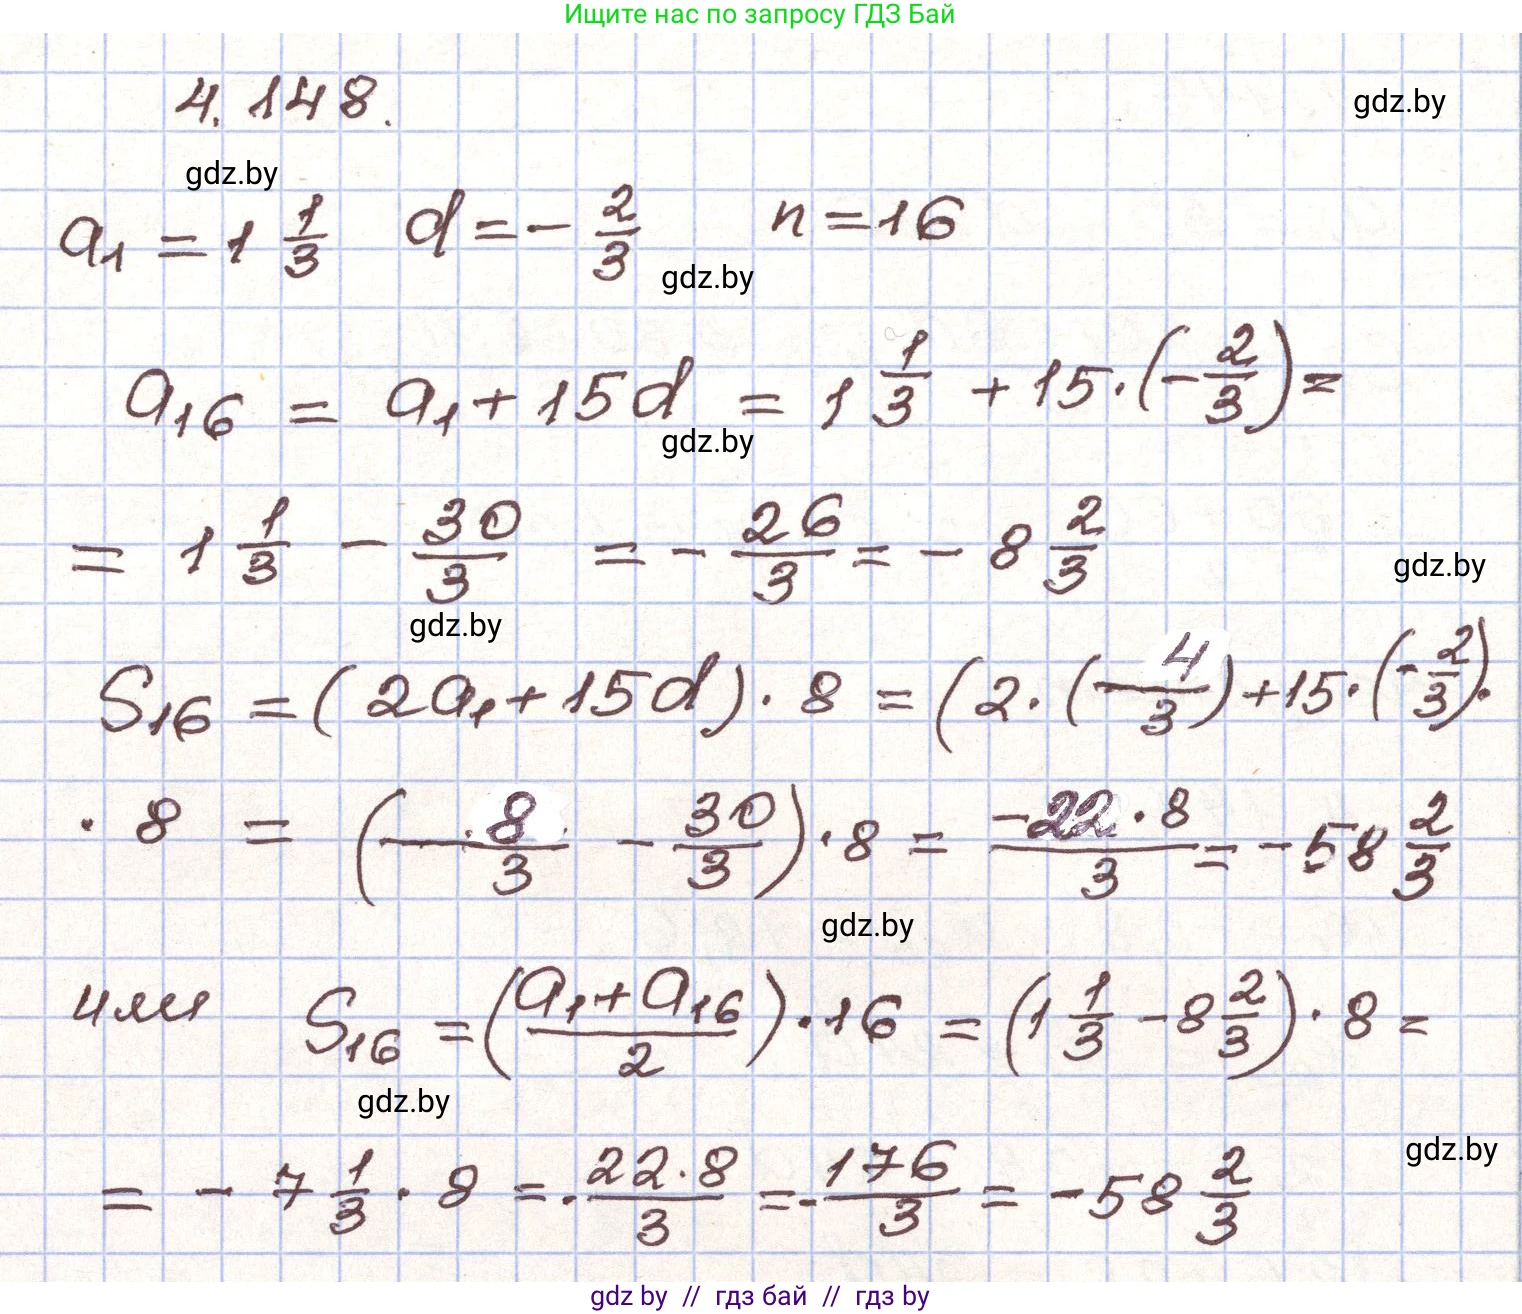 Ищите нас по запросу ГДЗ Бай
4.148.
gdz.by
gdz.by
a₁ = 1 1/3 d = - 2/3 n = 16
gdz.by
a₁₆ = a₁ + 15d = 1 1/3 + 15 · (- 2/3) =
gdz.by
= 1 1/3 - 30/3 = - 26/3 = - 8 2/3
gdz.by
gdz.by
S₁₆ = (2a₁ + 15d) · 8 = (2 · (4/3) + 15 · (- 2/3) ·
· 8 = (8/3 - 30/3) · 8 = -22 · 8/3 = - 58 2/3
gdz.by
или S₁₆ = (a₁ + a₁₆/2) · 16 = (1 1/3 - 8 2/3) · 8 =
gdz.by
gdz.by
= - 7 1/3 · 8 = - 22 · 8/3 = - 176/3 = - 58 2/3
gdz by // гдз бай // гдз by